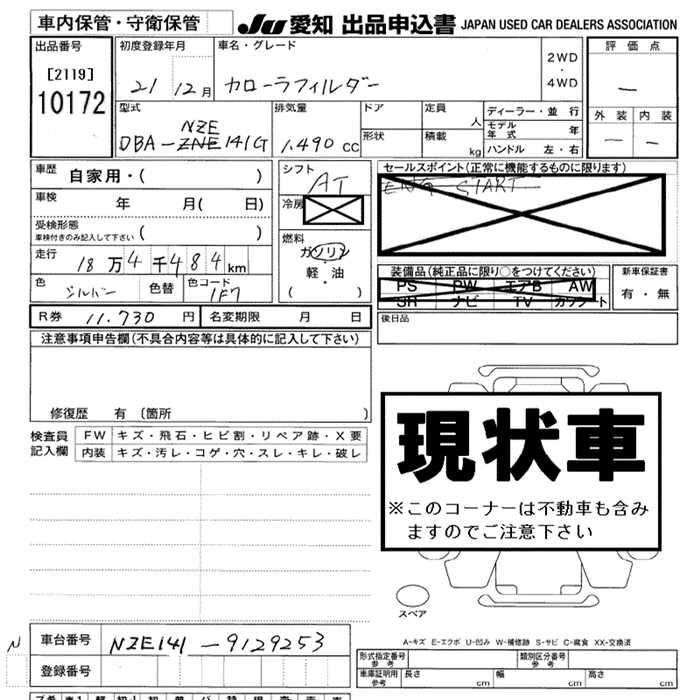 車内保管・守衛保管
JU 愛知 出品申込書 JAPAN USED CAR DEALERS ASSOCIATION
出品番号
[2119]
10172
初度登録年月
21 12月
車名・グレード
カローラフィルダー
2WD
・
4WD
評価点
—
外装 内装
— —
型式
NZE
DBA-ZNE141G
排気量
1.490 cc
ドア
形状
定員
人
積載
kg
ディーラー・並行
モデル年式 年
ハンドル 左・右
車歴 自家用・( )
車検 年 月( 日)
受検形態
車検付きのみ記入して下さい ( )
走行
18万4千484km
色 シルバー 色替 色コード 1F7
シフト
AT
冷房
燃料
ガソリン
軽・油
( )
セールスポイント(正常に機能するものに限ります)
ENG START
装備品(純正品に限り○をつけてください)
PS PW エアB AW
SR ナビ TV カワシート
新車保証書
有・無
R券 11.730円 名変期限 月 日
後日品
注意事項申告欄(不具合内容等は具体的に記入して下さい)
修復歴 有 (箇所 )
検査員記入欄
FW キズ・飛石・ヒビ割・リペア跡・X要
内装 キズ・汚レ・コゲ・穴・スレ・キレ・破レ
現状車
※このコーナーは不動車も含み
ますのでご注意下さい
スペア
A-キズ E-エクボ U-凹み W-補修跡 S-サビ C-腐食 XX-交換済
N
車台番号 NZE141-9129253
登録番号
型式指定番号
参考
類別区分番号
参考
車庫証明用
参考
長さ cm 幅 cm 高さ cm